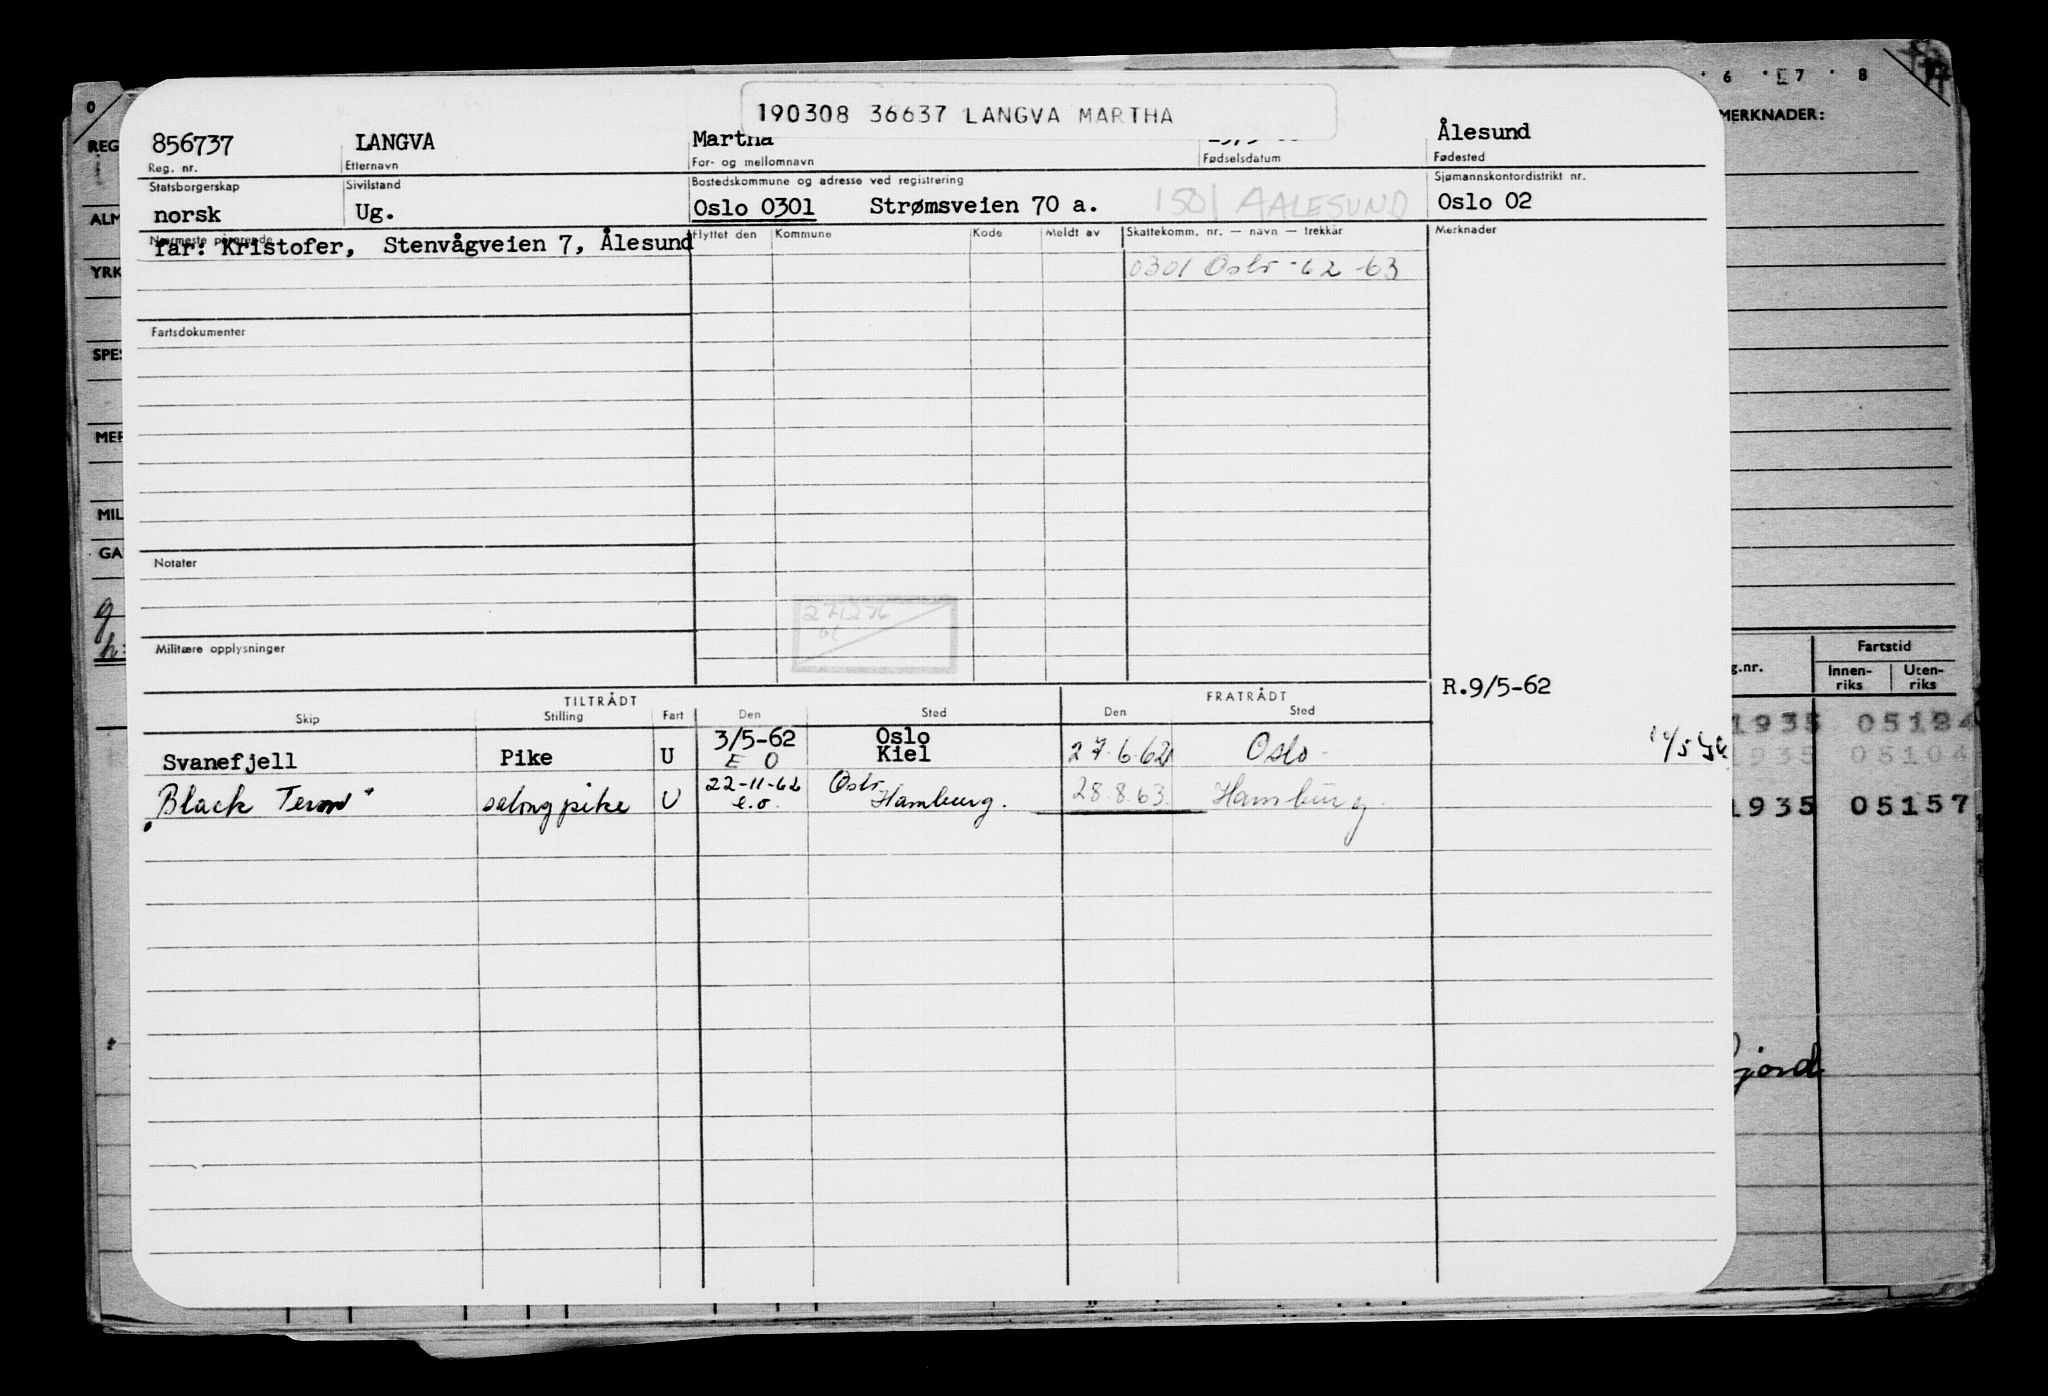 0 6 7 8
MERKNADER:
190308 36637 LANGVA MARTHA
856737 LANGVA Martha Ålesund
Reg. nr. Etternavn For- og mellomnavn Fødselsdatum Fødested
Statsborgerskap Sivilstand Bostedskommune og adresse ved registrering Sjømannskontordistrikt nr.
norsk Ug. Oslo 0301 Strømsveien 70 a. 1501 AALESUND Oslo 02
Nærmeste pårørende Flyttet den Kommune Kode Meldt av Skattekomm. nr. — navn — trekkår Merknader
far: Kristofer, Stenvågveien 7, Ålesund
0301 Oslo -62 -63
Fartsdokumenter
Notater
271276
Militære opplysninger
R.9/5-62
TILTRÅDT FRATRÅDT
Skip Stilling Fart Den Sted Den Sted
3/5-62 Oslo
Svanefjell Pike U E O Kiel 27.6.62 Oslo
22-11-62 Oslo
Black Tern" salongpike U e.o. Hamburg. 28.8.63. Hamburg.
REG
ALM
YRK
SPES
MER
MIL
GA
g
h
g.nr. Fartstid
Innen-riks Uten-riks
1935 05184
1935 05104
1935 05157
fjord